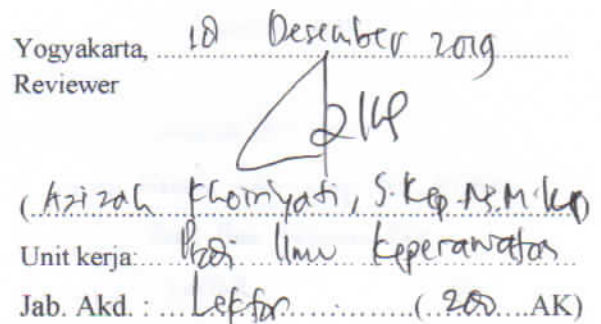 Yogyakarta, 18 Desember 2019
Reviewer
(Azizah Khoiriyati, S.Kep.Ns.M.Kep)
Unit kerja: Prodi Ilmu Keperawatan
Jab. Akd. : Lektor (200 AK)